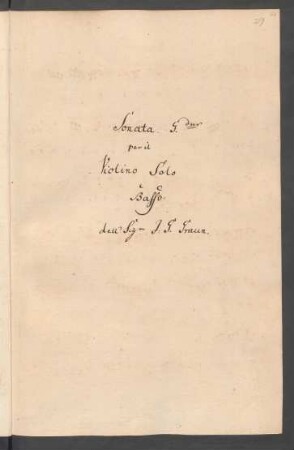 27
Sonata G. dur
per il
Violino Solo
e
Basso
dell Sigre J. G. Graun.